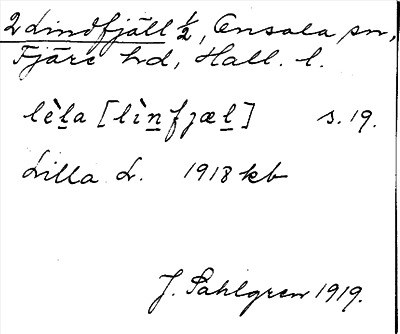 2 Lindfjäll ½, Onsala sn,
Fjäre hd, Hall. l.
lèḻa [lìṉfjæḻ] s. 19.
Lilla L. 1918 kb
J. Sahlgren 1919.